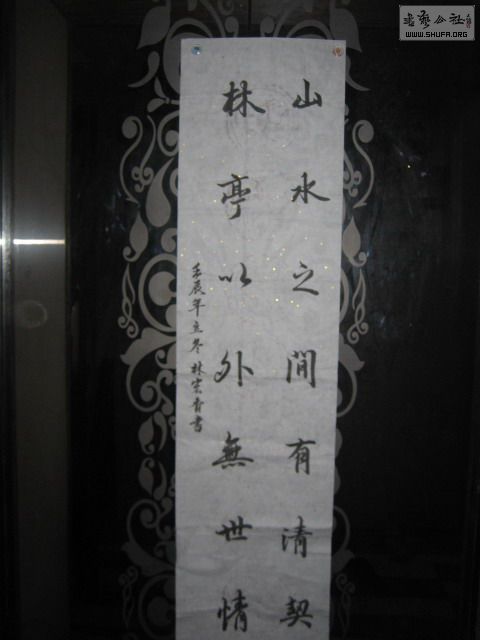 山水之間有清契
林亭以外無世情
壬辰年立冬林宏青書
書藝公社
WWW.SHUFA.ORG